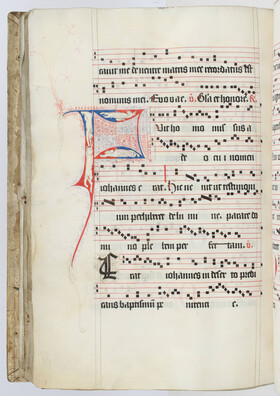 cavit me de ventre matris mee recordatus est
nominis mei. Evovae. V. Glia et honore. R.
Fuit ho mo mis sus a
de o cui nomen
iohannes e rat. Hic ve nit ut testimoni
um perhiberet de lu mi ne. parare do
mi no ple bem per fec tam. V.
E rat iohannes in deser to predi
cans baptismum peniten ci e.